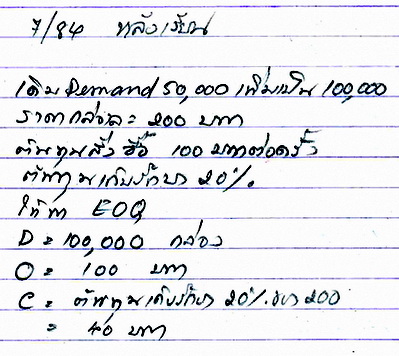 7/84 หลังเรียน
เดิม Demand 50,000 เพิ่มเป็น 100,000
ราคากล่องละ 200 บาท
ต้นทุนสั่งซื้อ 100 บาทต่อครั้ง
ต้นทุนเก็บรักษา 20%
ให้หา EOQ
D = 100,000 กล่อง
O = 100 บาท
C = ต้นทุนเก็บรักษา 20% ของ 200
= 40 บาท